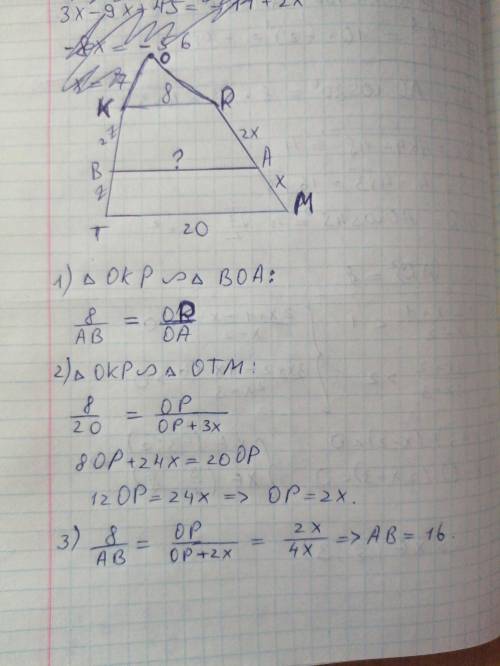 3x-9x+45=-11+2x
-8x=-56
x=7
O
K 8 P
2y 2x
B ? A
y x
T 20 M
1) △ OKP ∽ △ BOA:
8/AB = OP/OA
2) △ OKP ∽ △ OTM:
8/20 = OP/OP+3x
8OP+24x=20OP
12OP=24x => OP=2x.
3) 8/AB = OP/OP+2x = 2x/4x => AB=16.